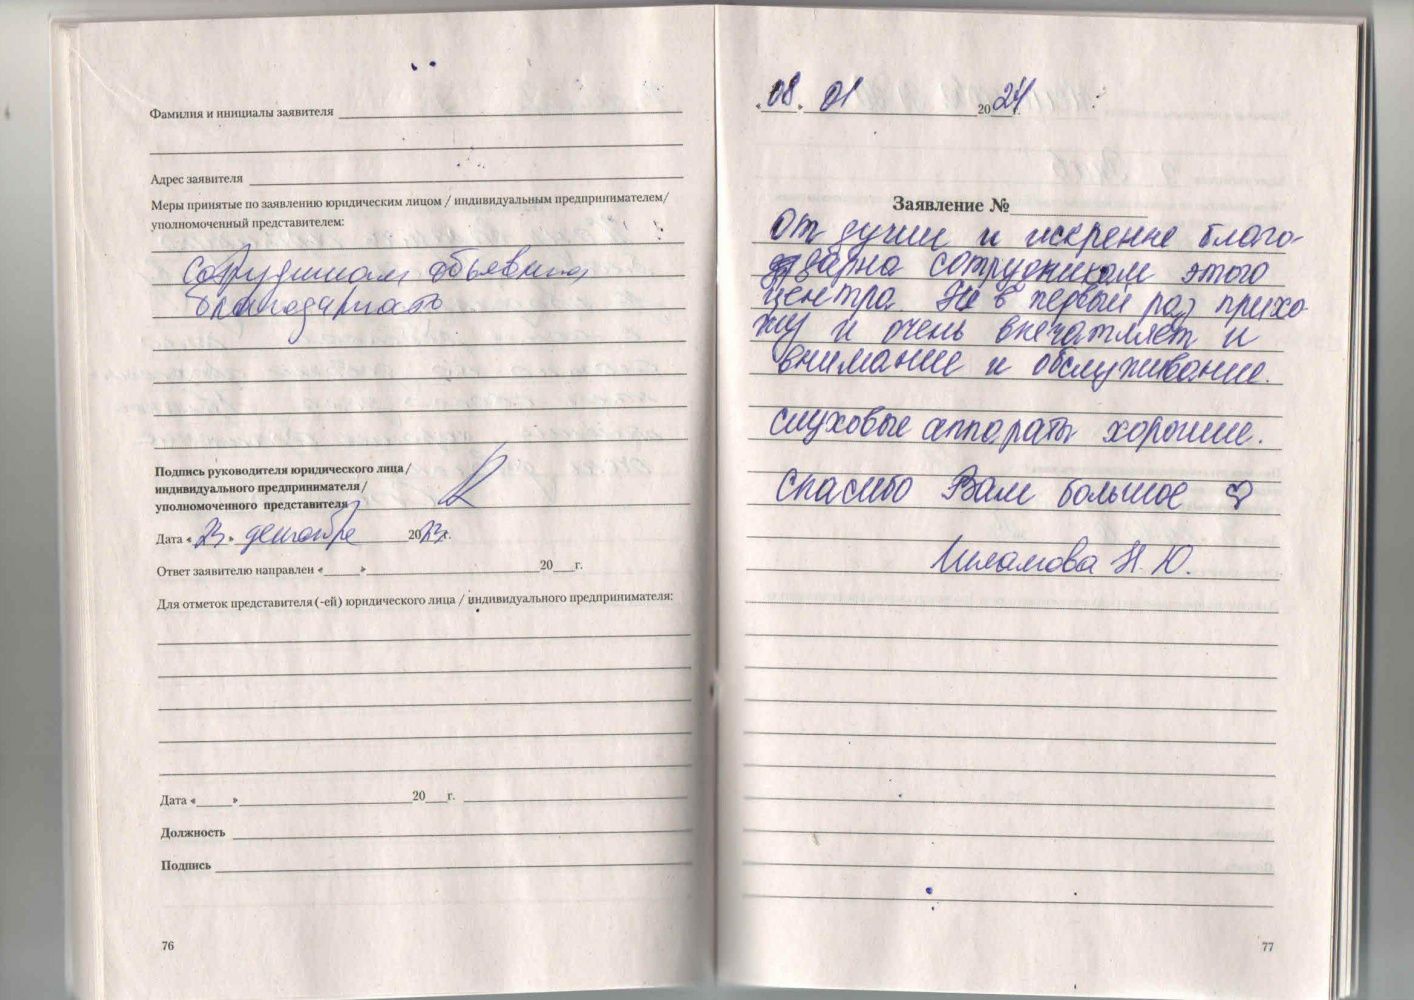 Фамилия и инициалы заявителя
Адрес заявителя
Меры принятые по заявлению юридическим лицом / индивидуальным предпринимателем/
уполномоченный представителем:
Сотрудникам объявлена
благодарность
Подпись руководителя юридического лица /
индивидуального предпринимателя /
уполномоченного представителя
Дата « 23 » декабря 2023г.
Ответ заявителю направлен «____»____20__г.
Для отметок представителя (-ей) юридического лица / индивидуального предпринимателя:
Дата «____»____20__г.
Должность
Подпись
76
«08» 01 2024г.
Заявление №
От души и искренне благо-
дарна сотрудникам этого
центра. Не в первый раз прихо-
жу и очень впечатляет и
внимание и обслуживание.
слуховые аппараты хорошие.
Спасибо Вам большое ♡
Н. Ю.
77